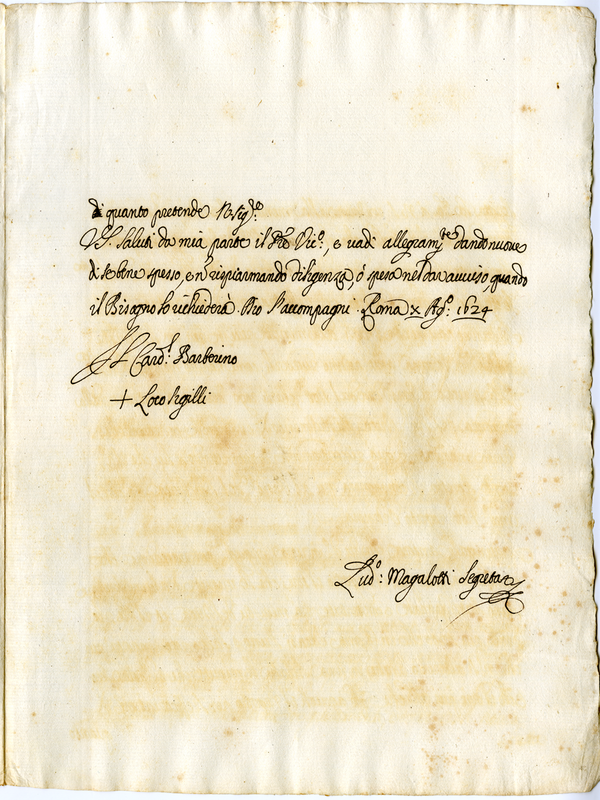 di quanto pretende N. Sig.re
V.S. saluti da mia parte il Pre Vic.o, e uadi allegram.te dando nuove
di se bene spesso, e nõ rispiarmando diligenza, ò spesa nel dar auuiso quando
il Bisogno lo richiederà. Dio l'accompagni. Roma x Ag.o: 1624
Il Card.l Barberino
+ Loco sigilli
Lud.o: Magalotti Segretar